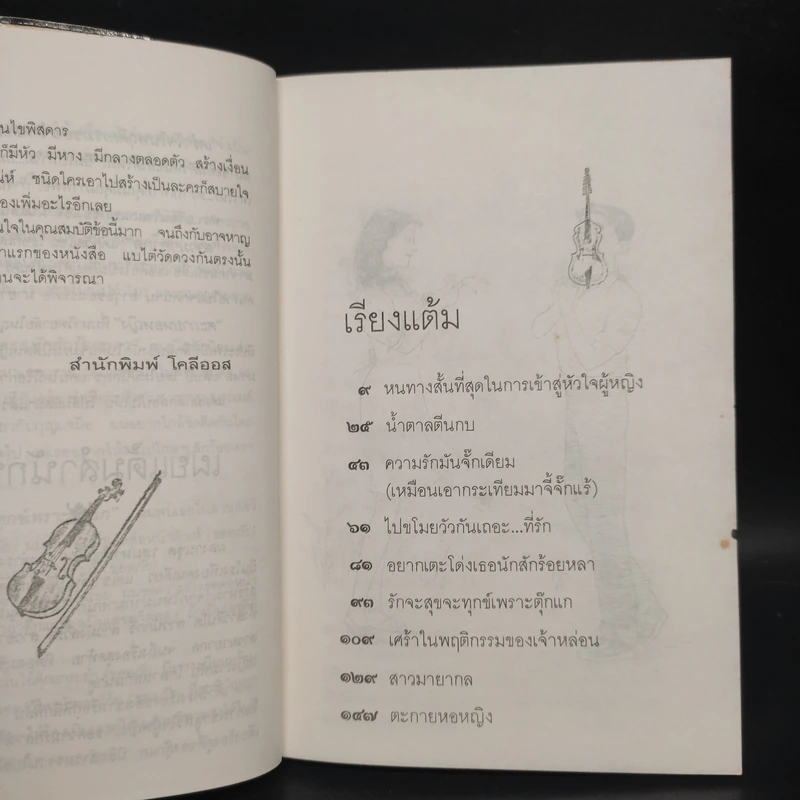 นไขพิสดาร
ก็มีหัว มีหาง มีกลางตลอดตัว สร้างเงื่อน
น่ห์ ชนิดใครเอาไปสร้างเป็นละครก็สบายใจ
องเพิ่มอะไรอีกเลย
นใจในคุณสมบัติข้อนี้มาก จนถึงกับอาจหาญ
าแรกของหนังสือ แบไต๋วัดดวงกันตรงนั้น
านจะได้พิจารณา
สำนักพิมพ์ โคลีออส
เรียงแต้ม
๙ หนทางสั้นที่สุดในการเข้าสู่หัวใจผู้หญิง
๒๕ น้ำตาลตีนกบ
๔๓ ความรักมันจั๊กเดียม
(เหมือนเอากระเทียมมาจี้จั๊กแร้)
๖๑ ไปขโมยวัวกันเถอะ...ที่รัก
๘๑ อยากเตะโด่งเธอนักสักร้อยหลา
๙๓ รักจะสุขจะทุกข์เพราะตุ๊กแก
๑๐๙ เศร้าในพฤติกรรมของเจ้าหล่อน
๑๒๙ สาวมายากล
๑๔๗ ตะกายหอหญิง